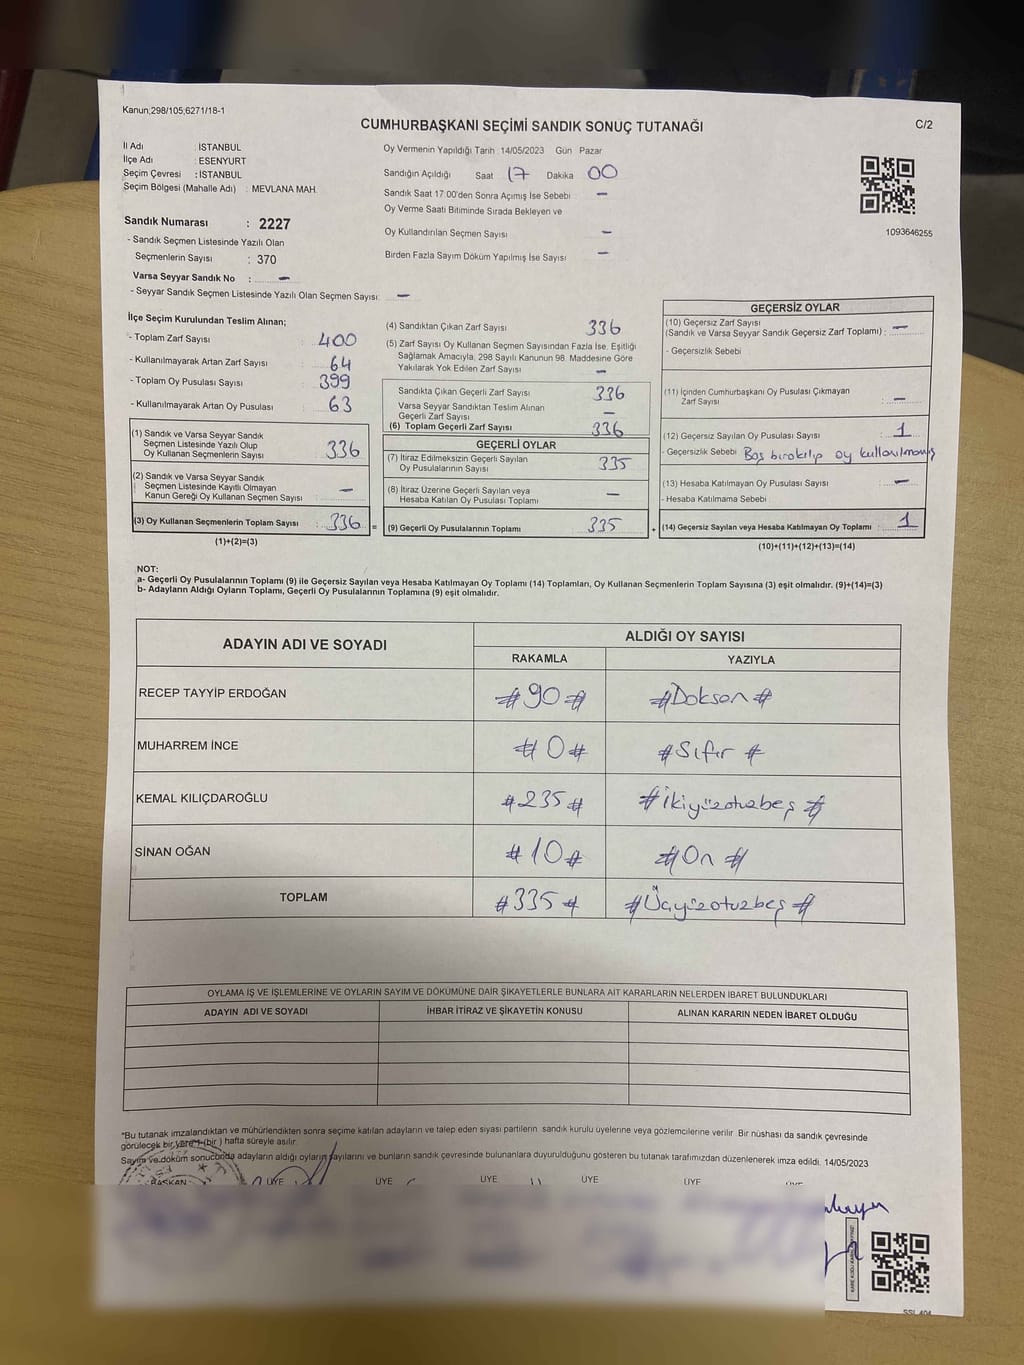 Kanun;298/105;6271/18-1
CUMHURBAŞKANI SEÇİMİ SANDIK SONUÇ TUTANAĞI
C/2
İl Adı : İSTANBUL
İlçe Adı : ESENYURT
Seçim Çevresi : İSTANBUL
Seçim Bölgesi (Mahalle Adı) : MEVLANA MAH.
Sandık Numarası : 2227
- Sandık Seçmen Listesinde Yazılı Olan
Seçmenlerin Sayısı : 370
Varsa Seyyar Sandık No : –
- Seyyar Sandık Seçmen Listesinde Yazılı Olan Seçmen Sayısı: –
Oy Vermenin Yapıldığı Tarih 14/05/2023 Gün Pazar
Sandığın Açıldığı Saat 17 Dakika 00
Sandık Saat 17:00'den Sonra Açımış İse Sebebi –
Oy Verme Saati Bitiminde Sırada Bekleyen ve
Oy Kullandırılan Seçmen Sayısı –
Birden Fazla Sayım Döküm Yapılmış İse Sayısı –
1093646255
İlçe Seçim Kurulundan Teslim Alınan;
- Toplam Zarf Sayısı : 400
- Kullanılmayarak Artan Zarf Sayısı : 64
- Toplam Oy Pusulası Sayısı : 399
- Kullanılmayarak Artan Oy Pusulası : 63
(1) Sandık ve Varsa Seyyar Sandık
Seçmen Listesinde Yazılı Olup
Oy Kullanan Seçmenlerin Sayısı : 336
(2) Sandık ve Varsa Seyyar Sandık
Seçmen Listesinde Kayıtlı Olmayan
Kanun Gereği Oy Kullanan Seçmen Sayısı : –
(3) Oy Kullanan Seçmenlerin Toplam Sayısı : 336 =
(1)+(2)=(3)
(4) Sandıktan Çıkan Zarf Sayısı 336
(5) Zarf Sayısı Oy Kullanan Seçmen Sayısından Fazla İse, Eşitliği
Sağlamak Amacıyla, 298 Sayılı Kanunun 98. Maddesine Göre
Yakılarak Yok Edilen Zarf Sayısı –
Sandıkta Çıkan Geçerli Zarf Sayısı 336
Varsa Seyyar Sandıktan Teslim Alınan
Geçerli Zarf Sayısı –
(6) Toplam Geçerli Zarf Sayısı 336
GEÇERLİ OYLAR
(7) İtiraz Edilmeksizin Geçerli Sayılan
Oy Pusulalarının Sayısı 335
(8) İtiraz Üzerine Geçerli Sayılan veya
Hesaba Katılan Oy Pusulası Toplamı –
(9) Geçerli Oy Pusulalarının Toplamı 335 +
GEÇERSİZ OYLAR
(10) Geçersiz Zarf Sayısı
(Sandık ve Varsa Seyyar Sandık Geçersiz Zarf Toplamı) : –
- Geçersizlik Sebebi
(11) İçinden Cumhurbaşkanı Oy Pusulası Çıkmayan
Zarf Sayısı : –
(12) Geçersiz Sayılan Oy Pusulası Sayısı : 1
- Geçersizlik Sebebi Boş bırakılıp oy kullanılmamış
(13) Hesaba Katılmayan Oy Pusulası Sayısı : –
- Hesaba Katılmama Sebebi
(14) Geçersiz Sayılan veya Hesaba Katılmayan Oy Toplamı : 1
(10)+(11)+(12)+(13)=(14)
NOT:
a- Geçerli Oy Pusulalarının Toplamı (9) ile Geçersiz Sayılan veya Hesaba Katılmayan Oy Toplamı (14) Toplamları, Oy Kullanan Seçmenlerin Toplam Sayısına (3) eşit olmalıdır. (9)+(14)=(3)
b- Adayların Aldığı Oyların Toplamı, Geçerli Oy Pusulalarının Toplamına (9) eşit olmalıdır.
ADAYIN ADI VE SOYADI
ALDIĞI OY SAYISI
RAKAMLA YAZIYLA
RECEP TAYYİP ERDOĞAN #90# #Doksan#
MUHARREM İNCE #0# #Sıfır#
KEMAL KILIÇDAROĞLU #235# #ikiyüzotuzbeş#
SİNAN OĞAN #10# #On#
TOPLAM #335# #Üçyüzotuzbeş#
OYLAMA İŞ VE İŞLEMLERİNE VE OYLARIN SAYIM VE DÖKÜMÜNE DAİR ŞİKAYETLERLE BUNLARA AİT KARARLARIN NELERDEN İBARET BULUNDUKLARI
ADAYIN ADI VE SOYADI İHBAR İTİRAZ VE ŞİKAYETİN KONUSU ALINAN KARARIN NEDEN İBARET OLDUĞU
*Bu tutanak imzalandıktan ve mühürlendikten sonra seçime katılan adayların ve talep eden siyasi partilerin sandık kurulu üyelerine veya gözlemcilerine verilir. Bir nüshası da sandık çevresinde
görülecek bir yere 1 (bir ) hafta süreyle asılır.
Sayım ve döküm sonucunda adayların aldığı oyların sayılarını ve bunların sandık çevresinde bulunanlara duyurulduğunu gösteren bu tutanak tarafımızdan düzenlenerek imza edildi. 14/05/2023
BAŞKAN ÜYE ÜYE ÜYE ÜYE ÜYE ÜYE